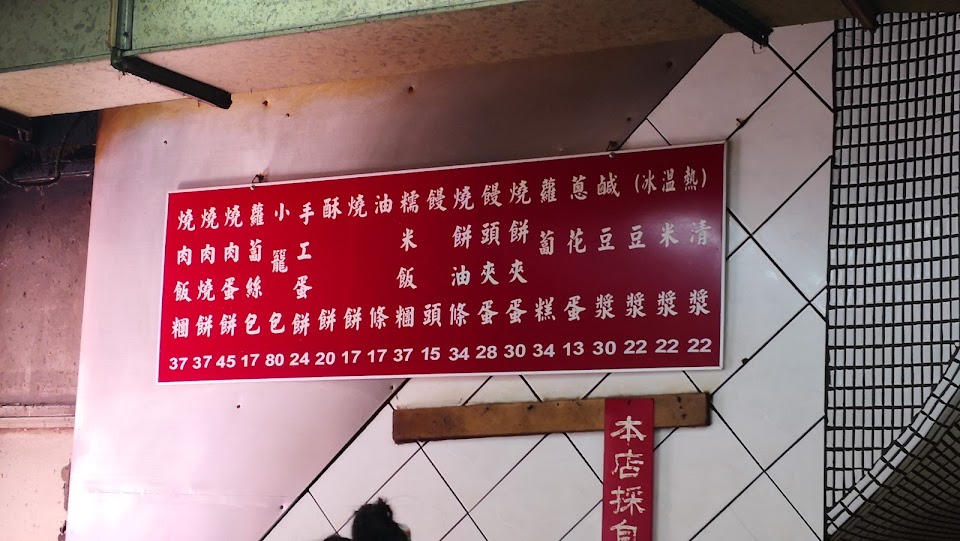 (冰溫熱)
清漿 22
米漿 22
豆漿 22
鹹豆漿 30
蔥花蛋 13
蘿蔔糕 34
燒餅夾蛋 30
饅頭夾蛋 28
燒餅油條 34
饅頭 15
糯米飯糰 37
油條 17
燒餅 17
酥餅 20
手工蛋餅 24
小籠包 80
蘿蔔絲包 17
燒肉蛋餅 45
燒肉燒餅 37
燒肉飯糰 37
本店採自